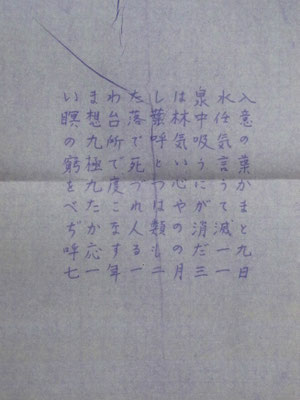 いまわたしは泉水入
瞑想台落葉林中任意
の九所で呼気吸気の
窮極で死という言葉
を九度づつ心にうか
べたこれはやがてま
ぢかな人類の消滅と
呼応するものだ一九
七一年一二月三一日